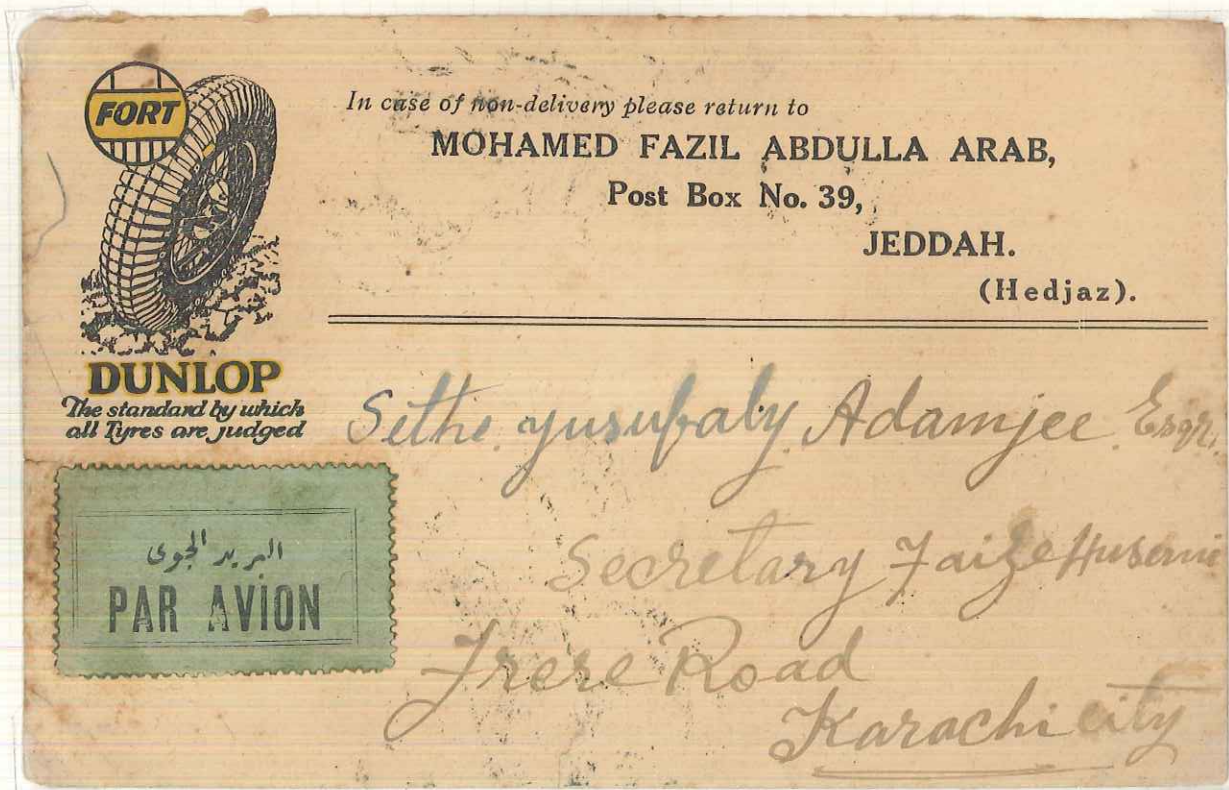 FORT
DUNLOP
The standard by which
all Tyres are judged
In case of non-delivery please return to
MOHAMED FAZIL ABDULLA ARAB,
Post Box No. 39,
JEDDAH.
(Hedjaz).
البريد الجوى
PAR AVION
Sethe yusufaly Adamjee Esqr.
Secretary Faize Husenie
Frere Road
Karachi city